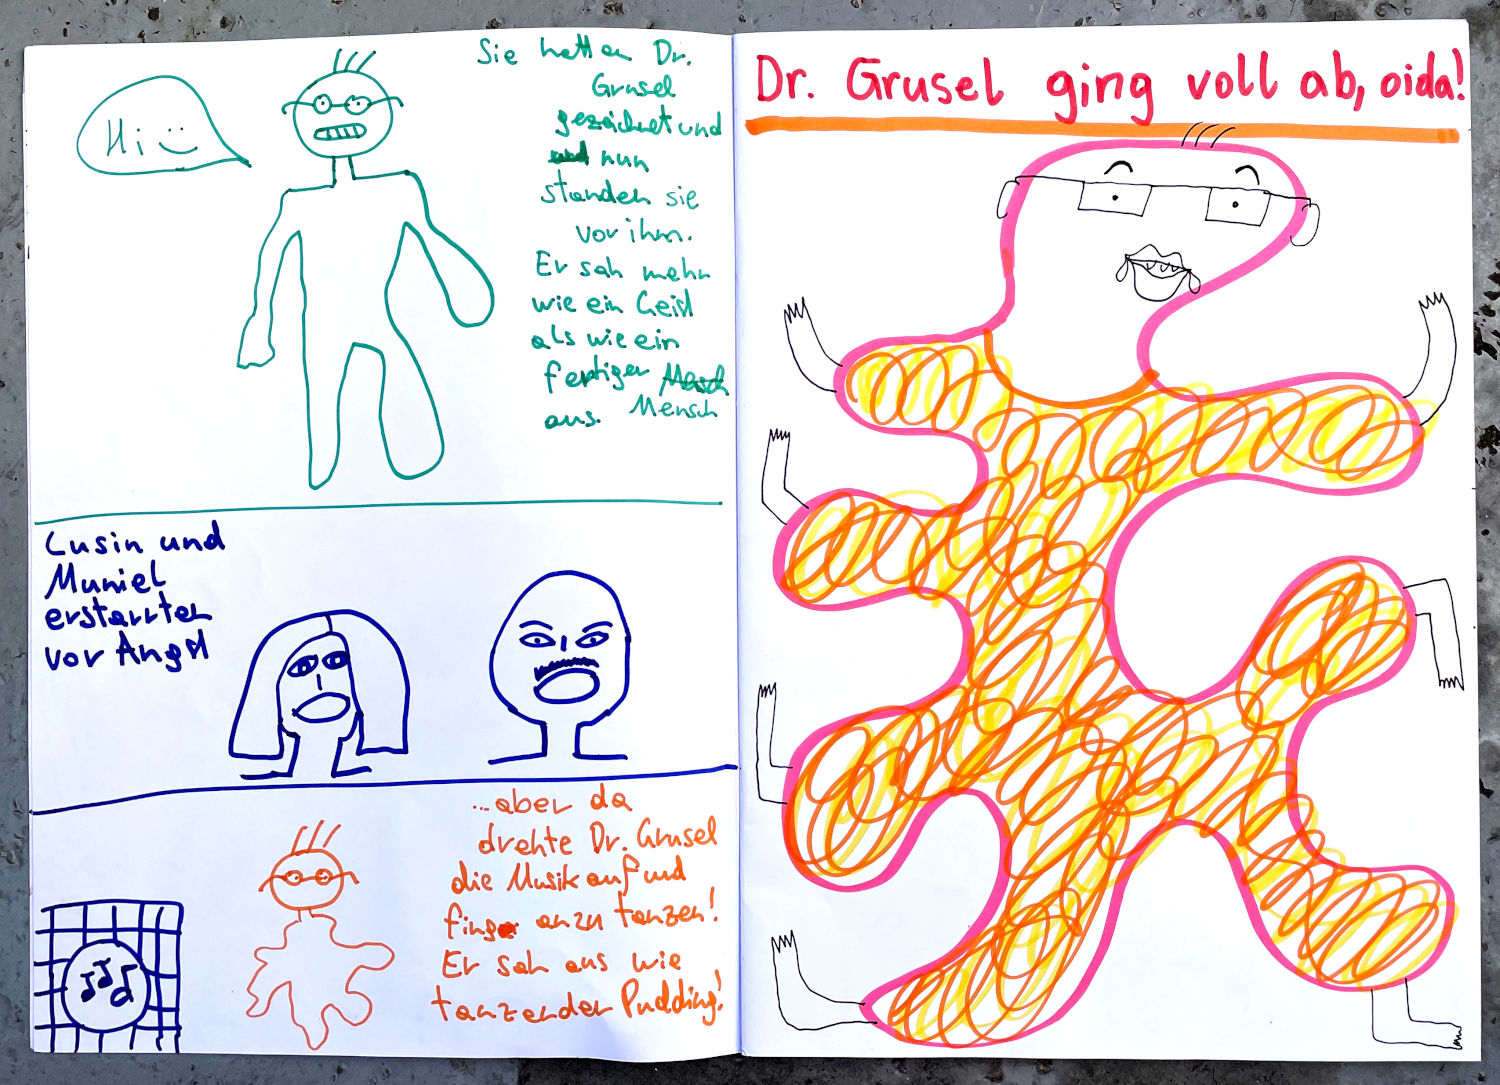 Hi
Sie hatten Dr.
Grusel
gezeichnet und
und nun
standen sie
vor ihm.
Er sah mehr
wie ein Geist
als wie ein
fertiger Mesch
Mensch
aus.
Lusin und
Muniel
erstarrten
vor Angst
...aber da
drehte Dr. Grusel
die Musik auf und
fing an zu tanzen!
Er sah aus wie
tanzender Pudding!
Dr. Grusel ging voll ab, oida!